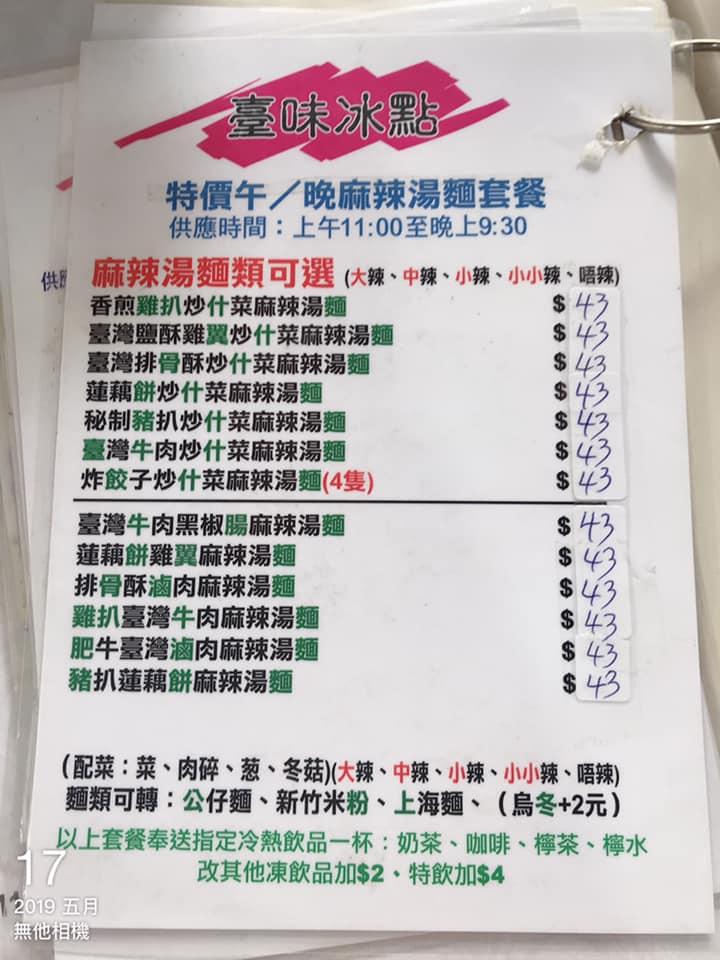 臺味冰點
特價午／晚麻辣湯麵套餐
供應時間：上午11:00至晚上9:30
麻辣湯麵類可選 (大辣、中辣、小辣、小小辣、唔辣)
香煎雞扒炒什菜麻辣湯麵 $ 43
臺灣鹽酥雞翼炒什菜麻辣湯麵 $ 43
臺灣排骨酥炒什菜麻辣湯麵 $ 43
蓮藕餅炒什菜麻辣湯麵 $ 43
秘制豬扒炒什菜麻辣湯麵 $ 43
臺灣牛肉炒什菜麻辣湯麵 $ 43
炸餃子炒什菜麻辣湯麵(4隻) $ 43
臺灣牛肉黑椒腸麻辣湯麵 $ 43
蓮藕餅雞翼麻辣湯麵 $ 43
排骨酥滷肉麻辣湯麵 $ 43
雞扒臺灣牛肉麻辣湯麵 $ 43
肥牛臺灣滷肉麻辣湯麵 $ 43
豬扒蓮藕餅麻辣湯麵 $ 43
(配菜：菜、肉碎、葱、冬菇)(大辣、中辣、小辣、小小辣、唔辣)
麵類可轉：公仔麵、新竹米粉、上海麵、（烏冬+2元）
以上套餐奉送指定冷熱飲品一杯：奶茶、咖啡、檸茶、檸水
改其他凍飲品加$2、特飲加$4
供
17
2019 五月
無他相機